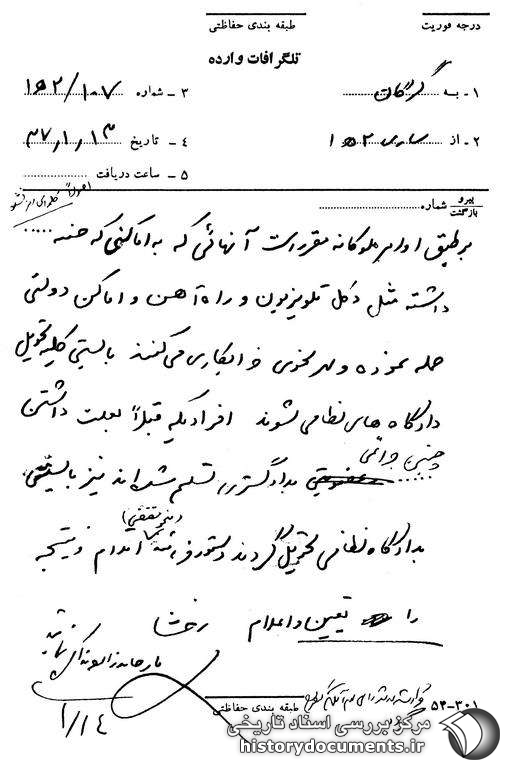 درجه فوریت
طبقه بندی حفاظتی
تلگرافات وارده
۱ - به گرگان
۳ - شماره ۱۵۲/۱۰۷
۲ - از ساری ۱۵۲
۴ - تاریخ ۳۷/۱/۱۳
۵ - ساعت دریافت
پیرو
بازگشت شماره
بر طبق اوامر ملوکانه مقرر است آنهائی که به اماکنی که جنبه .....
داشته مثل دکل تلویزیون و راه آهن و اماکن دولتی
حمله نموده و بهر نحوی خرابکاری می‌کنند بایستی کلیه تحویل
دادگاه های نظامی شوند افرادیکه قبلاً بعلت داشتن
چنین جرائمی
بدادگستری تسلیم شده‌اند نیز بایستی
بدادگاه نظامی تحویل گردند دستور فرمائید اقدام و نتیجه
را تعیین و اعلام رخشا
۱/۱۴
طبقه بندی حفاظتی
۵۴-۳۰۱
مرکز بررسی اسناد تاریخی
historydocuments.ir